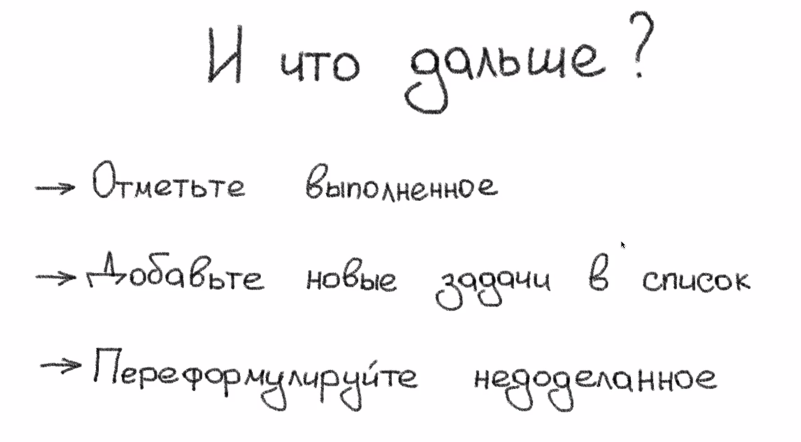 И что дальше?
→ Отметьте выполненное
→ Добавьте новые задачи в список
→ Переформулируйте недоделанное